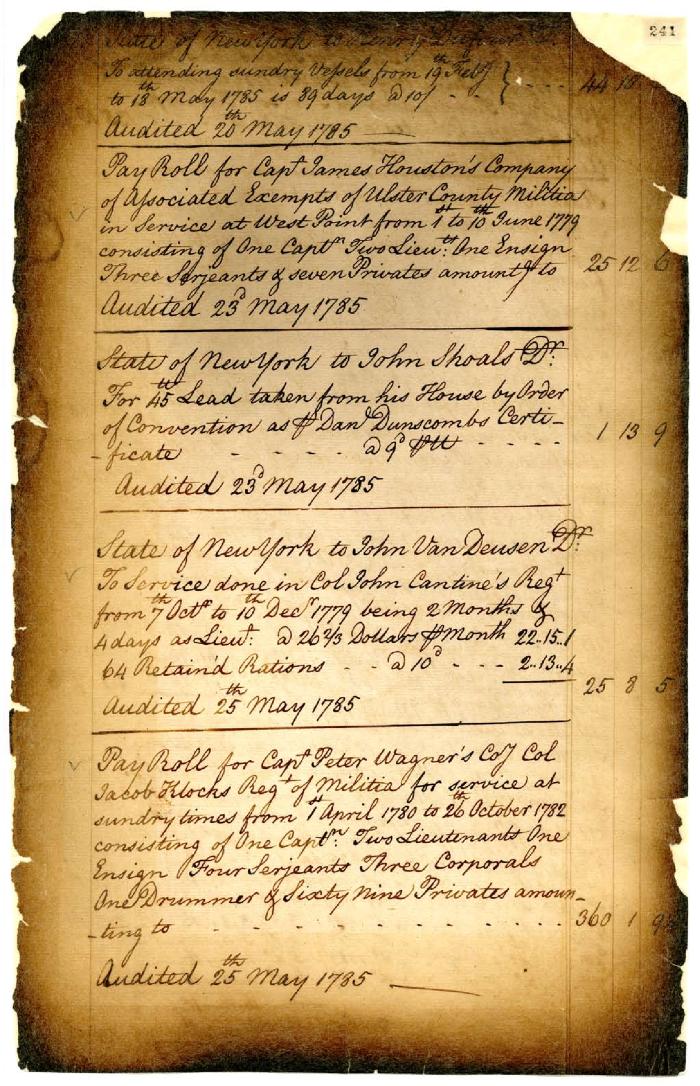 241
State of New York to
To attending sundry Vessels from 19th Feby
to 18 May 1785 is 89 days @ 10/ - - } - - - - 44 10
Audited 20th May 1785
Pay Roll for Capt James Houston's Company
of Associated Exempts of Ulster County Militia
in Service at West Point from 1st to 10th June 1779
consisting of One Captn Two Lieuts: One Ensign
Three Serjeants & seven Privates amountg to 25 12 6
Audited 23d May 1785
State of New York to John Shoals Dr.
For 45 lb Lead taken from his House by Order
of Convention as ⅌ Danl Dunscombs Certi-
-ficate - - - - @ 9d ⅌ lb - - - - 1 13 9
Audited 23d May 1785
State of New York to John Van Deusen Dr.
To Service done in Col John Cantine's Regt
from 7th Octr to 10th Decr 1779 being 2 Months &
4 days as Lieut: @ 26 2/3 Dollars ⅌ Month 22..15..1
64 Retain'd Rations - - @ 10d - - - 2..13..4
25 8 5
Audited 25th May 1785
Pay Roll for Capt Peter Wagner's Coy Col
Jacob Klocks Regt of Militia for service at
sundry times from 1st April 1780 to 26th October 1782
consisting of One Captn: Two Lieutenants One
Ensign Four Serjeants Three Corporals
One Drummer & Sixty Nine Privates amoun-
-ting to - - - - - - - - - 360 1 9
Audited 25th May 1785